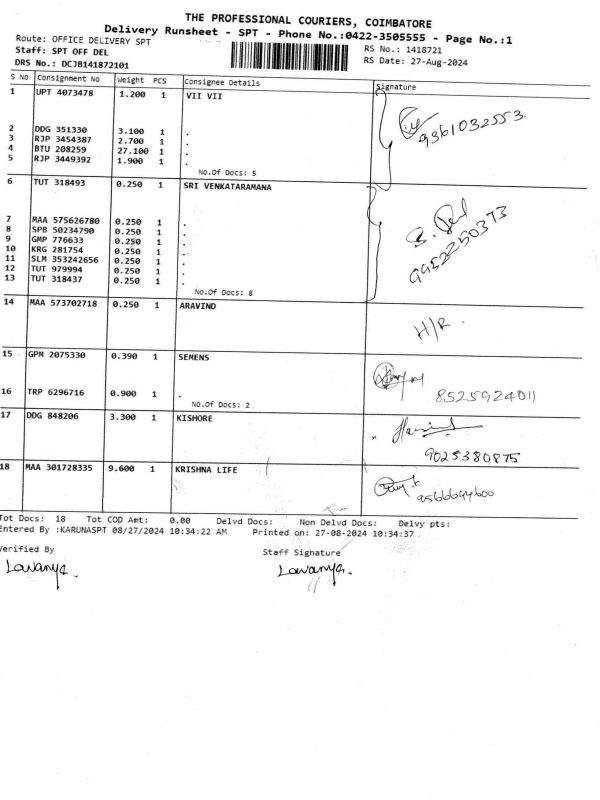 THE PROFESSIONAL COURIERS, COIMBATORE
Delivery Runsheet - SPT - Phone No.:0422-3505555 - Page No.:1
Route: OFFICE DELIVERY SPT
RS No.: 1418721
Staff: SPT OFF DEL
RS Date: 27-Aug-2024
DRS No.: DCJB141872101
S No Consignment No Weight PCS Consignee Details Signature
1 UPT 4073478 1.200 1 VII VII
9361032553
2 DDG 351330 3.100 1 .
3 RJP 3454387 2.700 1 .
4 BTU 208259 27.100 1 .
5 RJP 3449392 1.900 1 .
No.Of Docs: 5
6 TUT 318493 0.250 1 SRI VENKATARAMANA
7 MAA 575626780 0.250 1 .
8 SPB 50234790 0.250 1 .
9 GMP 776633 0.250 1 .
10 KRG 281754 0.250 1 .
11 SLM 353242656 0.250 1 .
12 TUT 979994 0.250 1 .
13 TUT 318437 0.250 1 .
9952250373
No.Of Docs: 8
14 MAA 573702718 0.250 1 ARAVIND
H/R.
15 GPM 2075330 0.390 1 SEMENS
16 TRP 6296716 0.900 1 .
8525924011
No.Of Docs: 2
17 DDG 848206 3.300 1 KISHORE
9025380875
18 MAA 301728335 9.600 1 KRISHNA LIFE
9566644600
Tot Docs: 18 Tot COD Amt: 0.00 Delvd Docs: Non Delvd Docs: Delvy pts:
Entered By :KARUNASPT 08/27/2024 10:34:22 AM Printed on: 27-08-2024 10:34:37
Verified By
Staff Signature
Lavanya.
Lavanya.